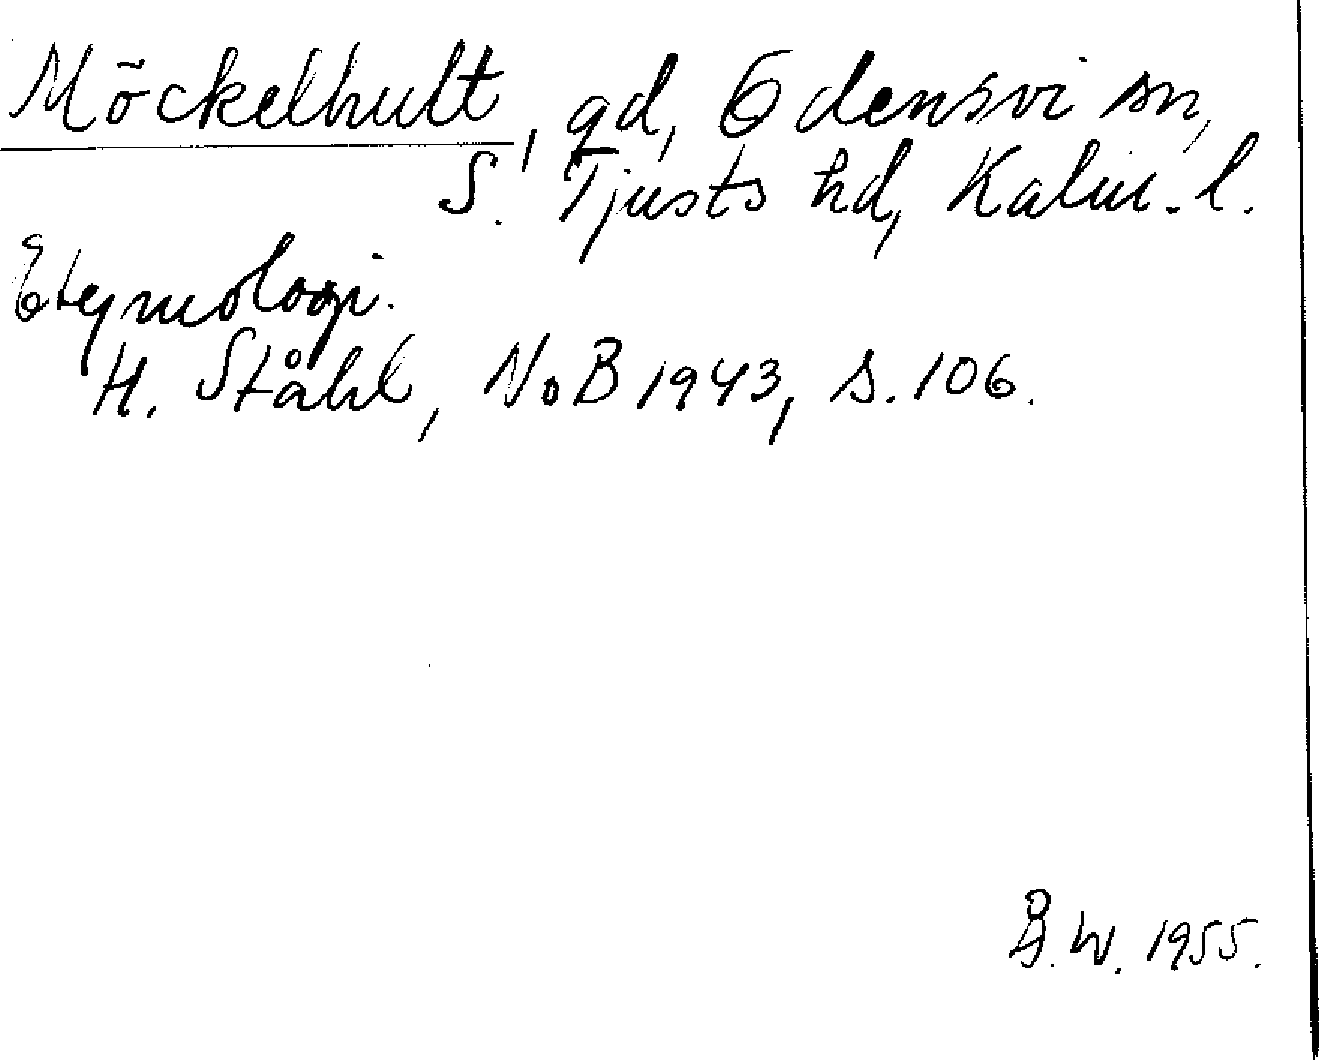 Möckelhult, gd, Odensvi sn,
S. Tjusts hd, Kalm. l.
Etymologi.
H. Ståhl, NoB 1943, s. 106.
Å. W. 1955.